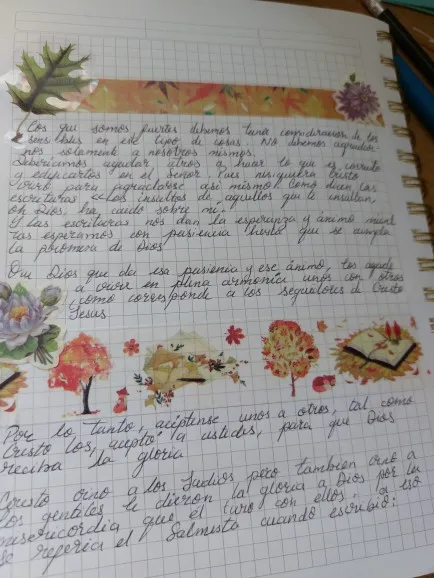 Los que somos fuertes debemos tener consideracion de los
sensibles en este tipo de cosas. No debemos agradar-
nos solamente a nosotros mismos.
Deberiamos ayudar otros a hacer lo que es correcto
y edificarlos en el Señor. Pues ni siquiera Cristo
vivio para agradarse asi mismo. Como dicen las
escrituras "los insultos de aquellos que te insultan,
oh Dios, ha caido sobre mi".
Y las escrituras nos dan la esperanza y animo mient
ras esperamos con pasiencia hasta que se cumpla
la promesa de Dios
Que Dios que da esa pasiencia y ese animo, los ayude
a vivir en plena armonia unos con otros
como corresponde a los seguidores de Cristo
Jesus
Por lo tanto, acéptense unos a otros, tal como
Cristo los aceptó a ustedes, para que Dios
reciba la gloria
Cristo vino a los Judios pero tambien vino a
los gentiles le dieron la gloria a Dios por la
misericordia que el tuvo con ellos, a eso
se referia el Salmista cuando escribió: